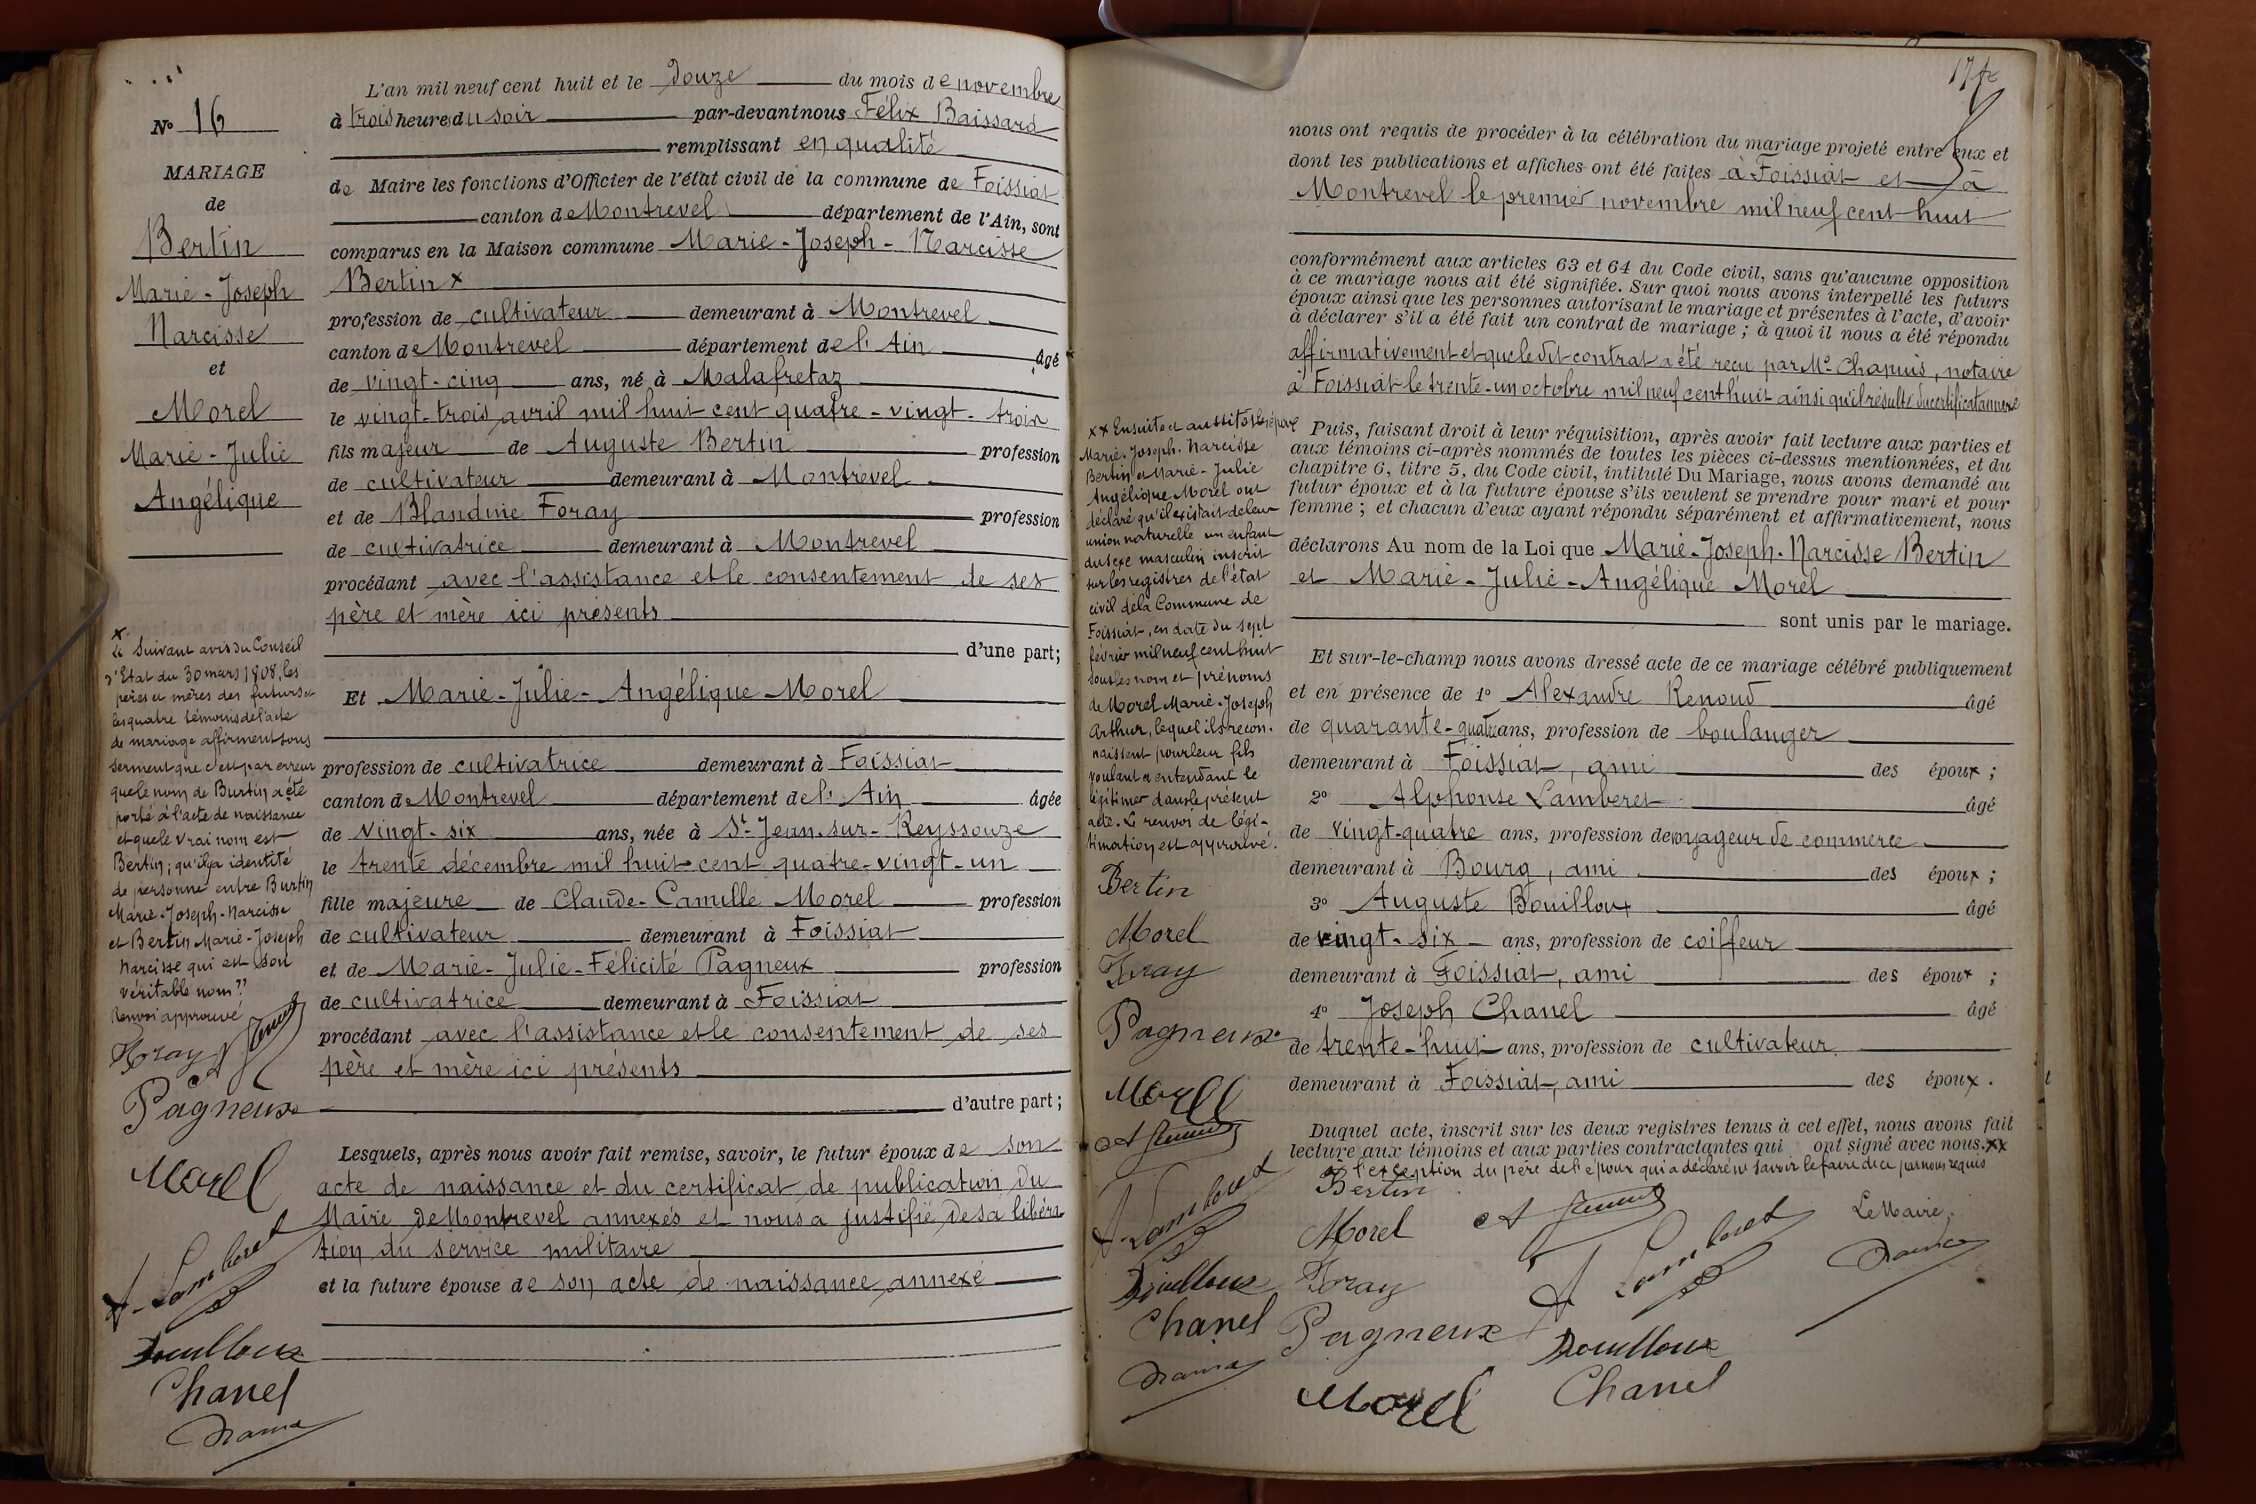 N° 16
MARIAGE
de
Bertin
Marie-Joseph
Narcisse
et
Morel
Marie-Julie
Angélique
L'an mil neuf cent huit et le douze du mois de novembre
à trois heures du soir par-devant nous Félix Baissard
remplissant en qualité
de Maire les fonctions d'Officier de l'état civil de la commune de Foissiat
canton de Montrevel département de l'Ain, sont
comparus en la Maison commune Marie-Joseph-Narcisse
Bertin x
profession de cultivateur demeurant à Montrevel
canton de Montrevel département de l'Ain âgé
de vingt-cinq ans, né à Malafretaz
le vingt-trois avril mil huit cent quatre-vingt-trois
fils majeur de Auguste Bertin profession
de cultivateur demeurant à Montrevel
et de Blandine Foray profession
de cultivatrice demeurant à Montrevel
procédant avec l'assistance et le consentement de ses
père et mère ici présents
d'une part;
Et Marie-Julie-Angélique Morel
profession de cultivatrice demeurant à Foissiat
canton de Montrevel département de l'Ain âgée
de vingt-six ans, née à St-Jean-sur-Reyssouze
le trente décembre mil huit cent quatre-vingt-un
fille majeure de Claude-Camille Morel profession
de cultivateur demeurant à Foissiat
et de Marie-Julie-Félicité Pagneux profession
de cultivatrice demeurant à Foissiat
procédant avec l'assistance et le consentement de ses
père et mère ici présents
d'autre part;
Lesquels, après nous avoir fait remise, savoir, le futur époux de son
acte de naissance et du certificat de publication du
Maire de Montrevel annexés et nous a justifié de sa libéra-
tion du service militaire
et la future épouse de son acte de naissance annexé
x
Suivant avis du Conseil
d'Etat du 30 mars 1808, les
pères et mères des futurs et
les quatre témoins de l'acte
de mariage affirment sous
serment que c'est par erreur
que le nom de Burtin a été
porté à l'acte de naissance
et que le vrai nom est
Bertin; qu'il y a identité
de personne entre Burtin
Marie-Joseph-Narcisse
et Bertin Marie-Joseph
Narcisse qui est son
véritable nom"
Renvoi approuvé
Foray
Pagneux
Morel
A. Lamberet
Bouilloux
Chanel
17
nous ont requis de procéder à la célébration du mariage projeté entre eux et
dont les publications et affiches ont été faites à Foissiat et à
Montrevel le premier novembre mil neuf cent huit
conformément aux articles 63 et 64 du Code civil, sans qu'aucune opposition
à ce mariage nous ait été signifiée. Sur quoi nous avons interpellé les futurs
époux ainsi que les personnes autorisant le mariage et présentes à l'acte, d'avoir
à déclarer s'il a été fait un contrat de mariage; à quoi il nous a été répondu
affirmativement et que le dit contrat a été reçu par Me Chapuis, notaire
à Foissiat le trente-un octobre mil neuf cent huit ainsi qu'il résulte du certificat annexé
Puis, faisant droit à leur réquisition, après avoir fait lecture aux parties et
aux témoins ci-après nommés de toutes les pièces ci-dessus mentionnées, et du
chapitre 6, titre 5, du Code civil, intitulé Du Mariage, nous avons demandé au
futur époux et à la future épouse s'ils veulent se prendre pour mari et pour
femme; et chacun d'eux ayant répondu séparément et affirmativement, nous
déclarons Au nom de la Loi que Marie-Joseph-Narcisse Bertin
et Marie-Julie-Angélique Morel
sont unis par le mariage.
Et sur-le-champ nous avons dressé acte de ce mariage célébré publiquement
et en présence de 1° Alexandre Renoud âgé
de quarante-quatre ans, profession de boulanger
demeurant à Foissiat, ami des époux;
2° Alphonse Lamberet âgé
de vingt-quatre ans, profession de voyageur de commerce
demeurant à Bourg, ami des époux;
3° Auguste Bouilloux âgé
de vingt-six ans, profession de coiffeur
demeurant à Foissiat, ami des époux;
4° Joseph Chanel âgé
de trente-huit ans, profession de cultivateur
demeurant à Foissiat, ami des époux.
Duquel acte, inscrit sur les deux registres tenus à cet effet, nous avons fait
lecture aux témoins et aux parties contractantes qui ont signé avec nous. xx
à l'exception du père de l'époux qui a déclaré ne savoir le faire de ce par nous requis
Bertin
Morel
Foray
Pagneux
Morel
A. Lamberet
Bouilloux
Chanel
Le Maire
xx Ensuite et aussitôt les époux
Marie-Joseph-Narcisse
Bertin et Marie-Julie
Angélique Morel ont
déclaré qu'il existait de leur
union naturelle un enfant
du sexe masculin inscrit
sur les registres de l'état
civil de la Commune de
Foissiat, en date du sept
février mil neuf cent huit
sous les nom et prénoms
de Morel Marie-Joseph
Arthur, lequel ils recon-
naissent pour leur fils
voulant et entendant le
légitimer dans le présent
acte. Le renvoi de légi-
timation est approuvé.
Bertin
Morel
Foray
Pagneux
Morel
A. Lamberet
Bouilloux
Chanel